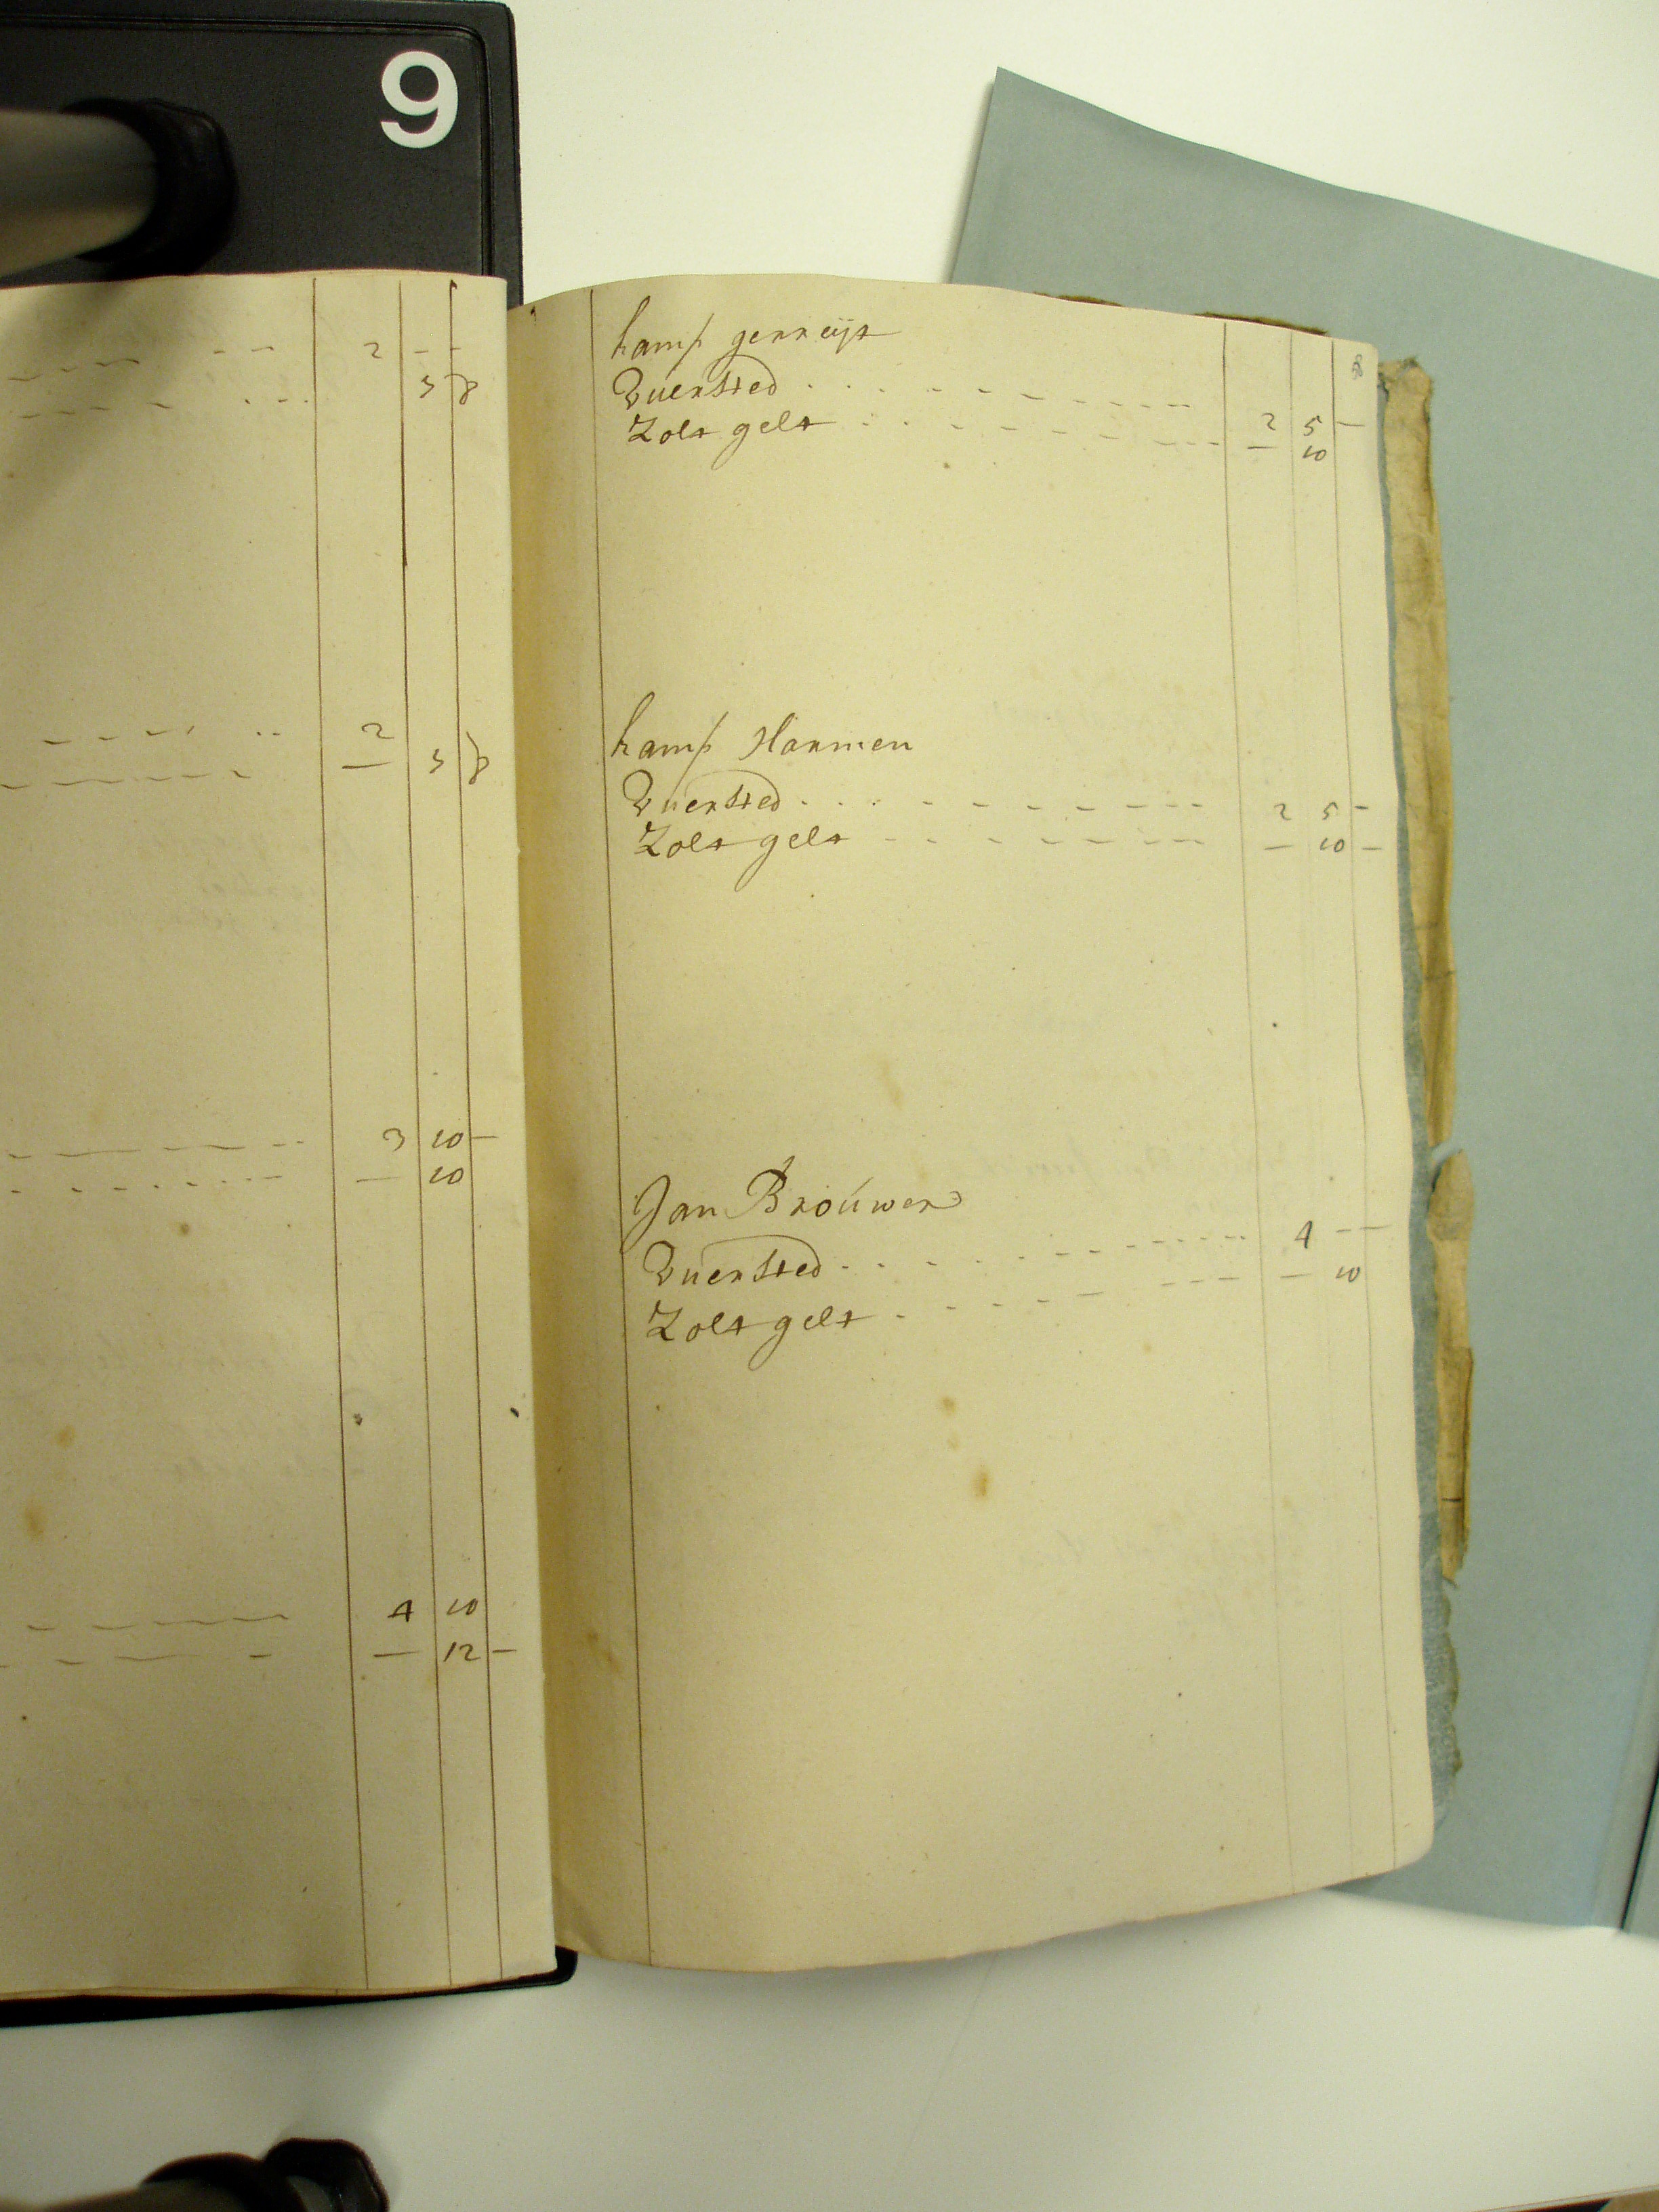 9
2 - -
5 8
2
— 5 8
3 10 —
— 10
4 10
— 12 —
8
hamp gerreijt
Vuersted . . . - - - - - - - 2 5 —
Zolt gelt . . . - - - - - - - — 10
hamp Harmen
Vuersted . . . - - - - - - - 2 5 -
Zolt gelt - - - - - - - - — 10 —
Jan Brouwer
Vuersted . . . - - - - - - - 4 - —
Zolt gelt . - - - - - - - - — 10